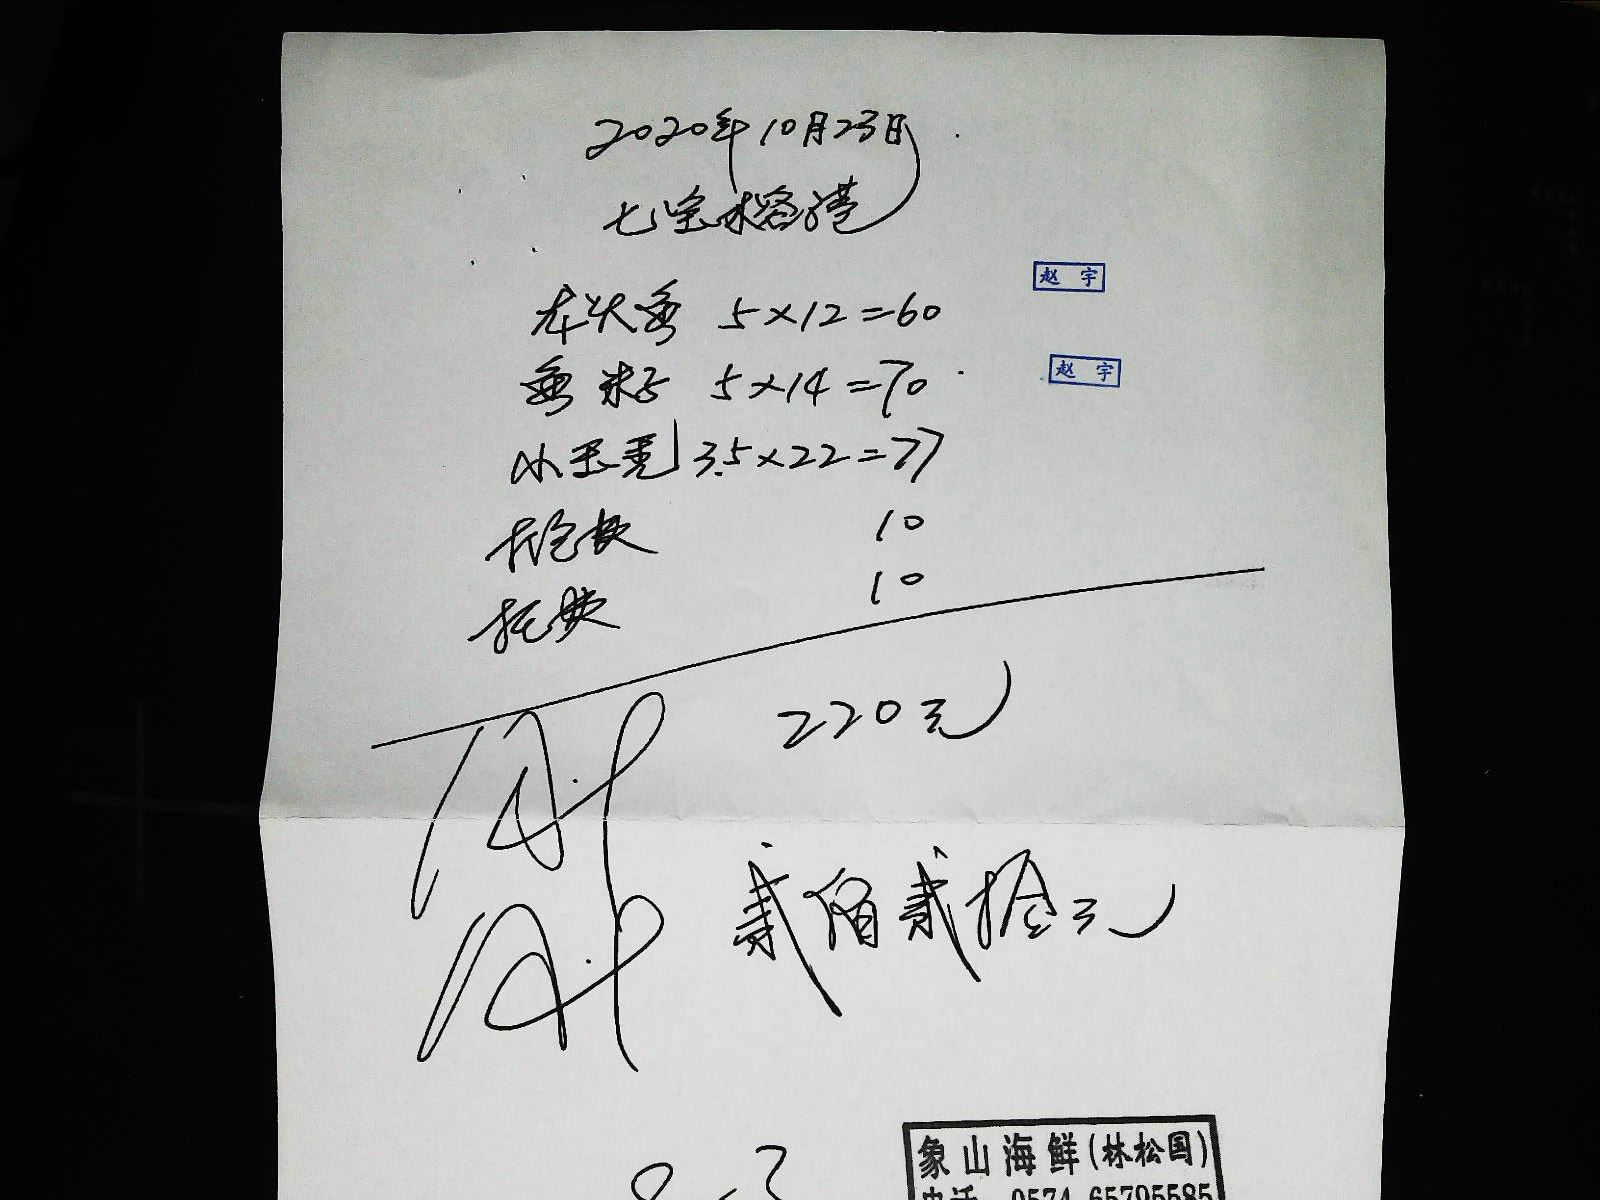 2020年10月23日
七宝榕港
赵 宇
龙头鱼 5×12=60
赵 宇
鱼籽 5×14=70
小玉秃 3.5×22=77
10
10
220元
贰佰贰拾元
象山海鲜(林松国)
电话 0574-65795585